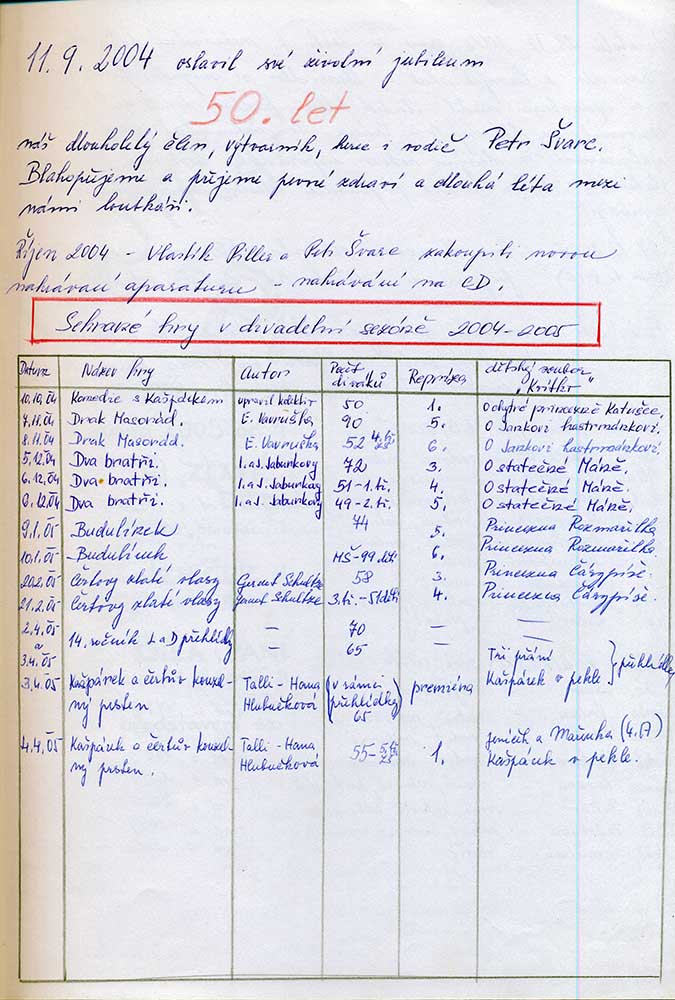 11. 9. 2004 oslavil své životní jubileum
50. let
náš dlouholetý člen, výtvarník, herec i vodič Petr Švarc.
Blahopřejeme a přejeme pevné zdraví a dlouhá léta mezi
námi loutkáři.
Říjen 2004 - Vlastík Piller a Petr Švarc zakoupili novou
nahrávací aparaturu - nahrávání na CD.
Sehrané hry v divadelní sezóně 2004-2005
Datum Název hry Autor Počet diváků Repríza dětský soubor „Kvítko“
10.10.04 Komedie s Kašpárkem upravil kolektiv 50 1. O chytré princezně Katušce,
7.11.04 Drak Masožrád. E. Vavruška 90 5. O Jankovi hastrmánkovi,
8.11.04 Drak Masožrád. E. Vavruška 52 4.tř. ZŠ 6. O Jankovi hastrmánkovi.
5.12.04 Dva bratři. L. a J. Jabůrkovy 72 3. O statečné Máně.
6.12.04 Dva bratři. L. a J. Jabůrkovy 51-1.tř. 4. O statečné Máně.
8.12.04 Dva bratři L. a J. Jabůrkovy 49-2.tř. 5. O statečné Máně.
9.1.05 Budulínek 74 5. Princezna Rozmařilka
10.1.05 Budulínek MŠ-99 dětí 6. Princezna Rozmařilka
20.2.05 Čertovy zlaté vlasy Gernot Schultze 58 3. Princezna Čárypíše.
21.2.05 Čertovy zlaté vlasy Gernot Schultze 3.tř.-51 dětí 4. Princezna Čárypíše.
2.4.05 14. ročník LaD přehlídky — 70 — —
a
3.4.05 — 65 — Tři přání } přehlídky
3.4.05 Kašpárek a čertův kouzel- Talli - Hana (v rámci premiéra Kašpárek v pekle
ný prsten Hlubučková přehlídky)
65
4.4.05 Kašpárek a čertův kouzel- Talli - Hana 55-5.tř. ZŠ 1. Jeníček a Mařenka (4.tř)
ný prsten. Hlubučková Kašpárek v pekle.